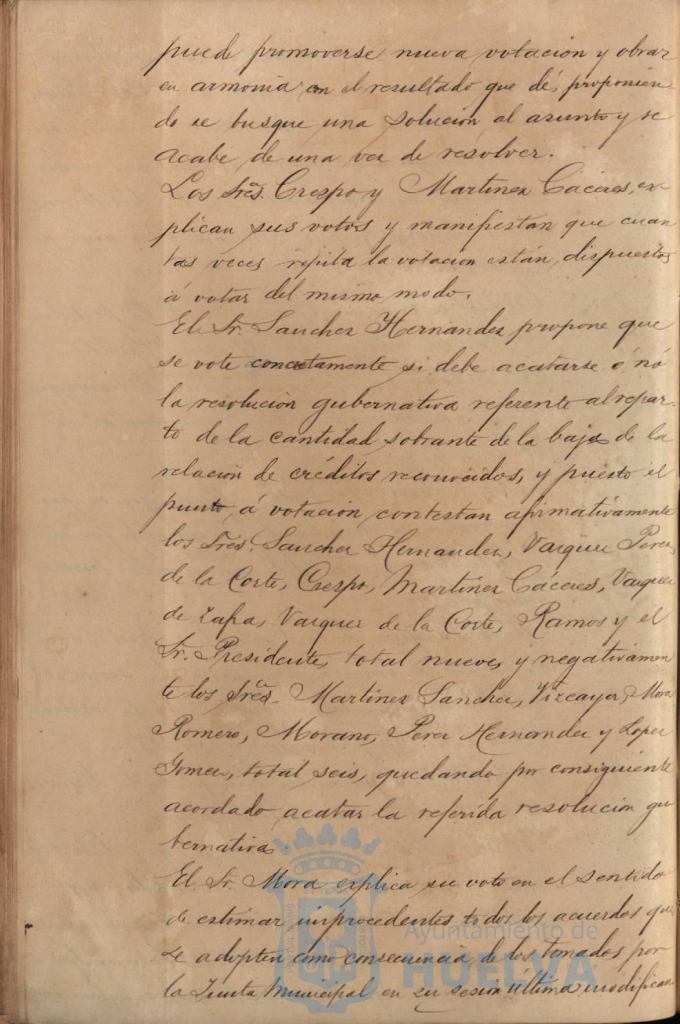 puede promoverse nueva votación y obrar
en armonía con el resultado que dé, proponien-
do se busque una solución al asunto y se
acabe de una vez de resolver.
Los Sres. Crespo y Martinez Cáceres, ex-
plican sus votos y manifiestan que cuan
tas veces repita la votación están dispuestos
á votar del mismo modo.
El Sr. Sanchez Hernandez propone que
se vote concretamente si debe acatarse ó nó
la resolución gubernativa referente al repar-
to de la cantidad sobrante de la baja de la
relación de créditos reconocidos, y puesto el
punto á votación contestan afirmativamente
los Sres. Sanchez Hernandez, Vazquez Perez,
de la Corte, Crespo, Martinez Cáceres, Vazquez
de Zafra, Vazquez de la Corte, Ramos y el
Sr. Presidente, total nueve, y negativamen
te los Sres. Martinez Sanchez, Vizcaya, Mora
Romero, Morano, Perez Hernandez y Lopez
Gomez, total seis, quedando por consiguiente
acordado acatar la referida resolución gu
bernativa
El Sr. Mora explica su voto en el sentido
de estimar improcedentes todos los acuerdos que
se adopten como consecuencia de los tomados por
la Junta Municipal en su sesión última modifican
Ayuntamiento de
HUELVA